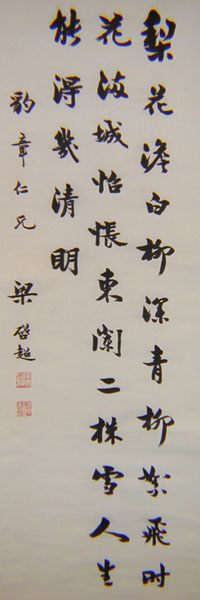 梨花澹白柳深青柳絮飛时
花滿城怡悵東闌二株雪人生
能得幾清明
豹章仁兄
梁啓超